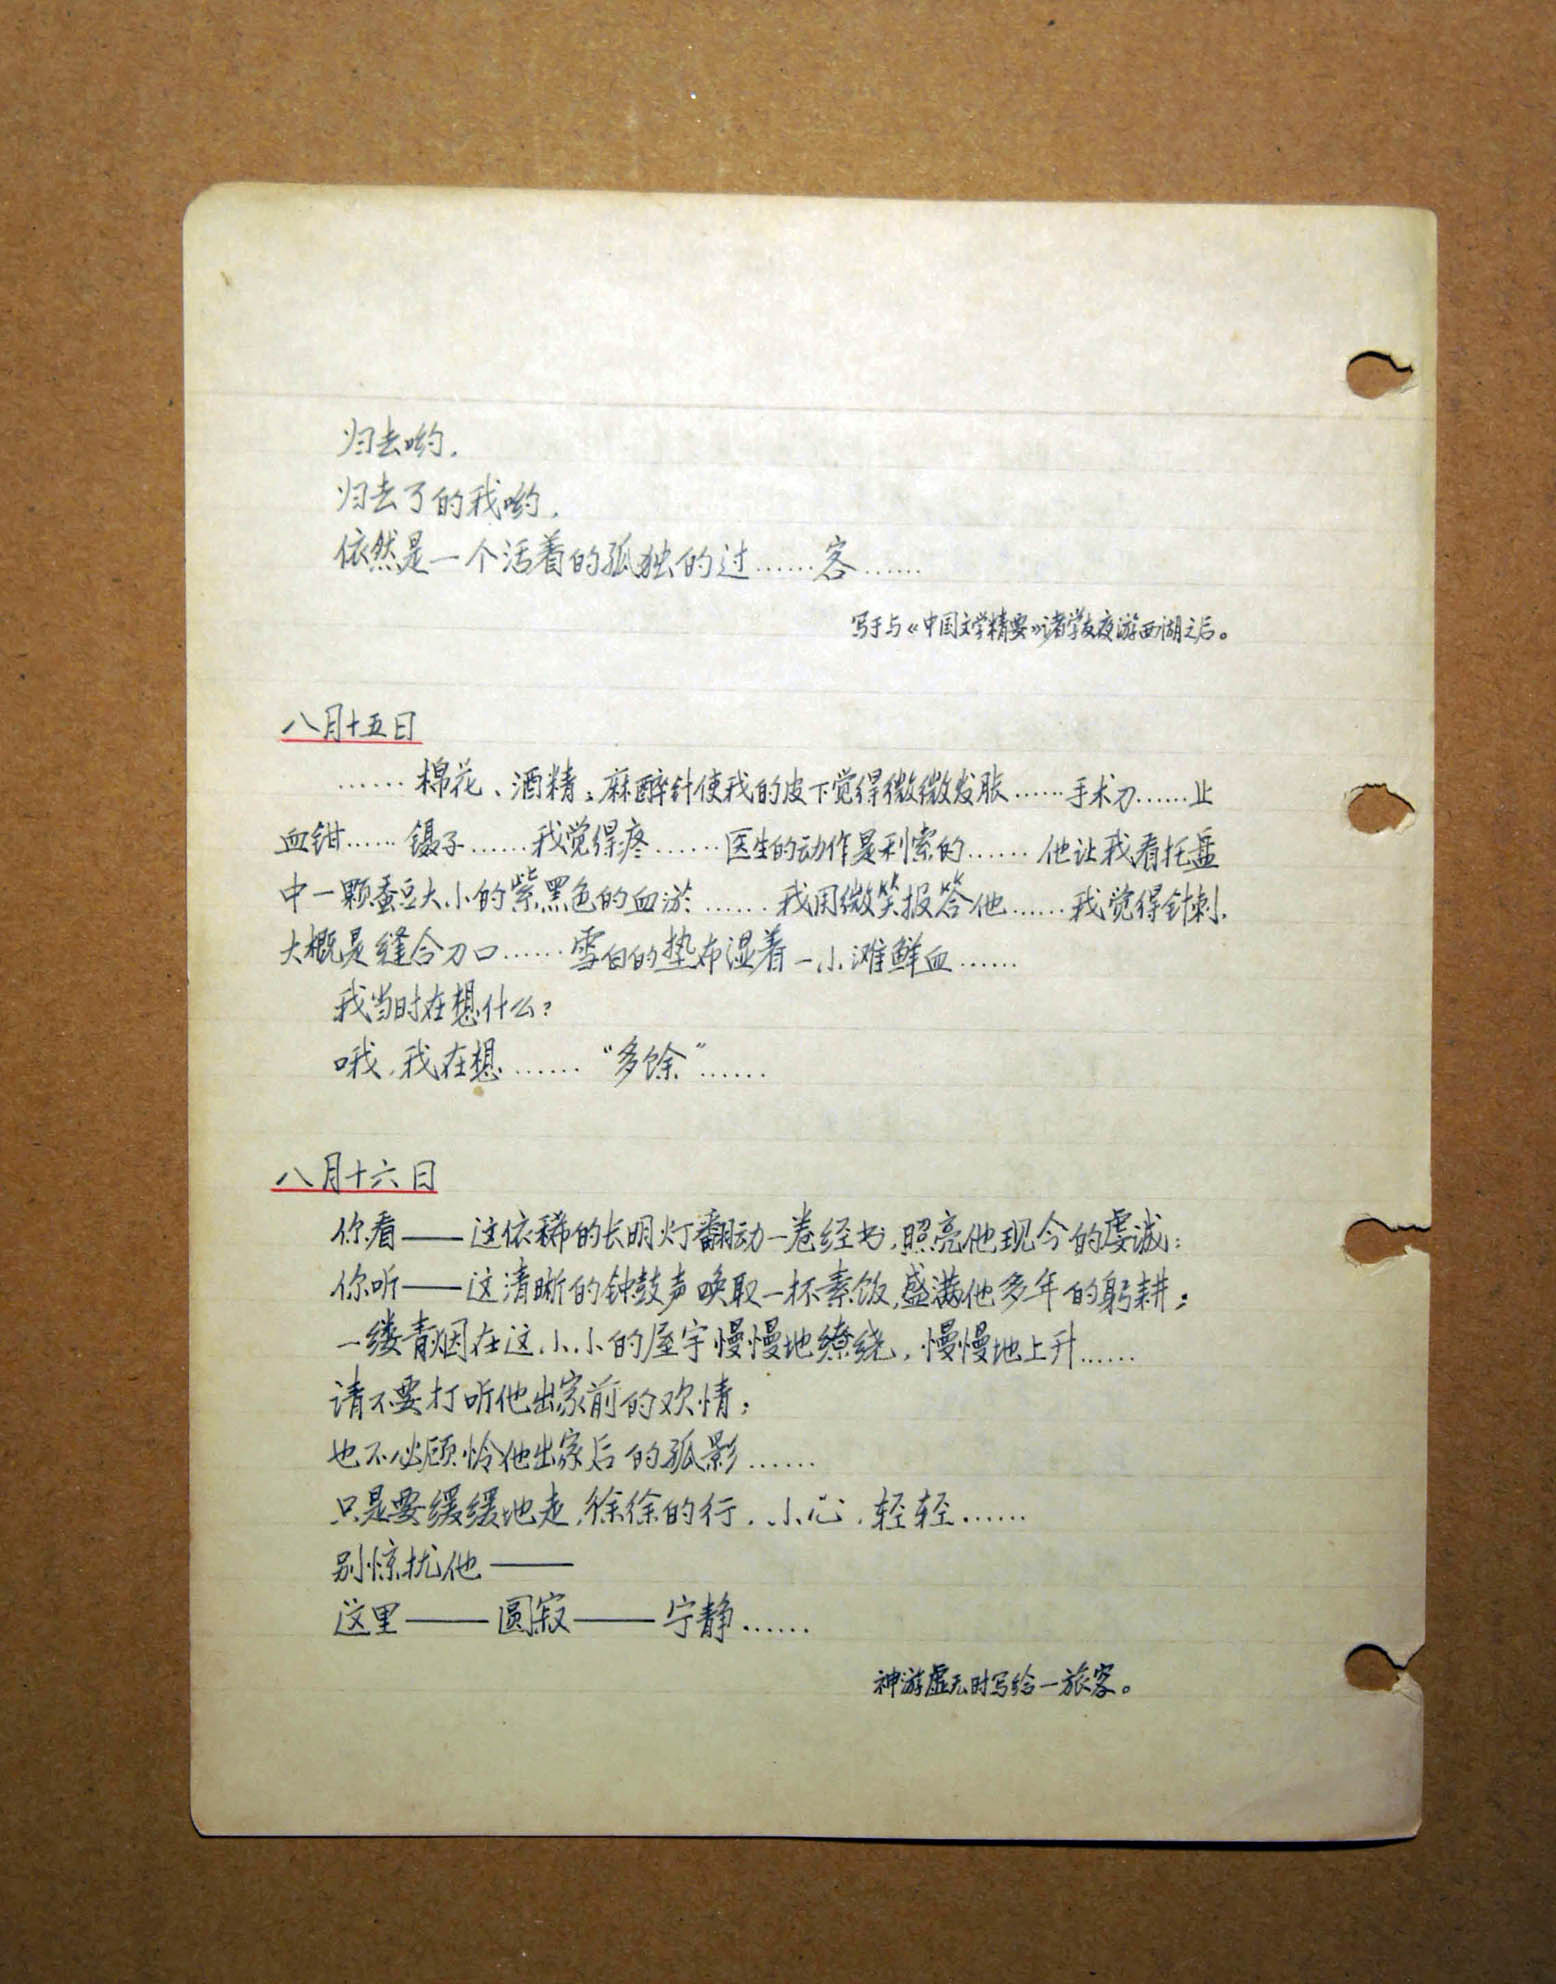 归去哟，
归去了的我哟，
依然是一个活着的孤独的过……客……
写于与《中国文学精要》诸学友夜游西湖之后。
八月十五日
……棉花、酒精；麻醉针使我的皮下觉得微微发胀……手术刀……止
血钳……镊子……我觉得疼……医生的动作是利索的……他让我看托盘
中一颗蚕豆大小的紫黑色的血淤……我用微笑报答他……我觉得针刺，
大概是缝合刀口……雪白的垫布湿着一小滩鲜血……
我当时在想什么？
哦，我在想……“多馀”……
八月十六日
你看——这依稀的长明灯翻动一卷经书，照亮他现今的虔诚；
你听——这清晰的钟鼓声唤取一杯素饭，盛满他多年的躬耕；
一缕青烟在这小小的屋宇慢慢地缭绕，慢慢地上升……
请不要打听他出家前的欢情；
也不必顾怜他出家后的孤影……
只是要缓缓地走，徐徐的行，小心，轻轻……
别惊扰他——
这里——圆寂——宁静……
神游虚无时写给一旅客。